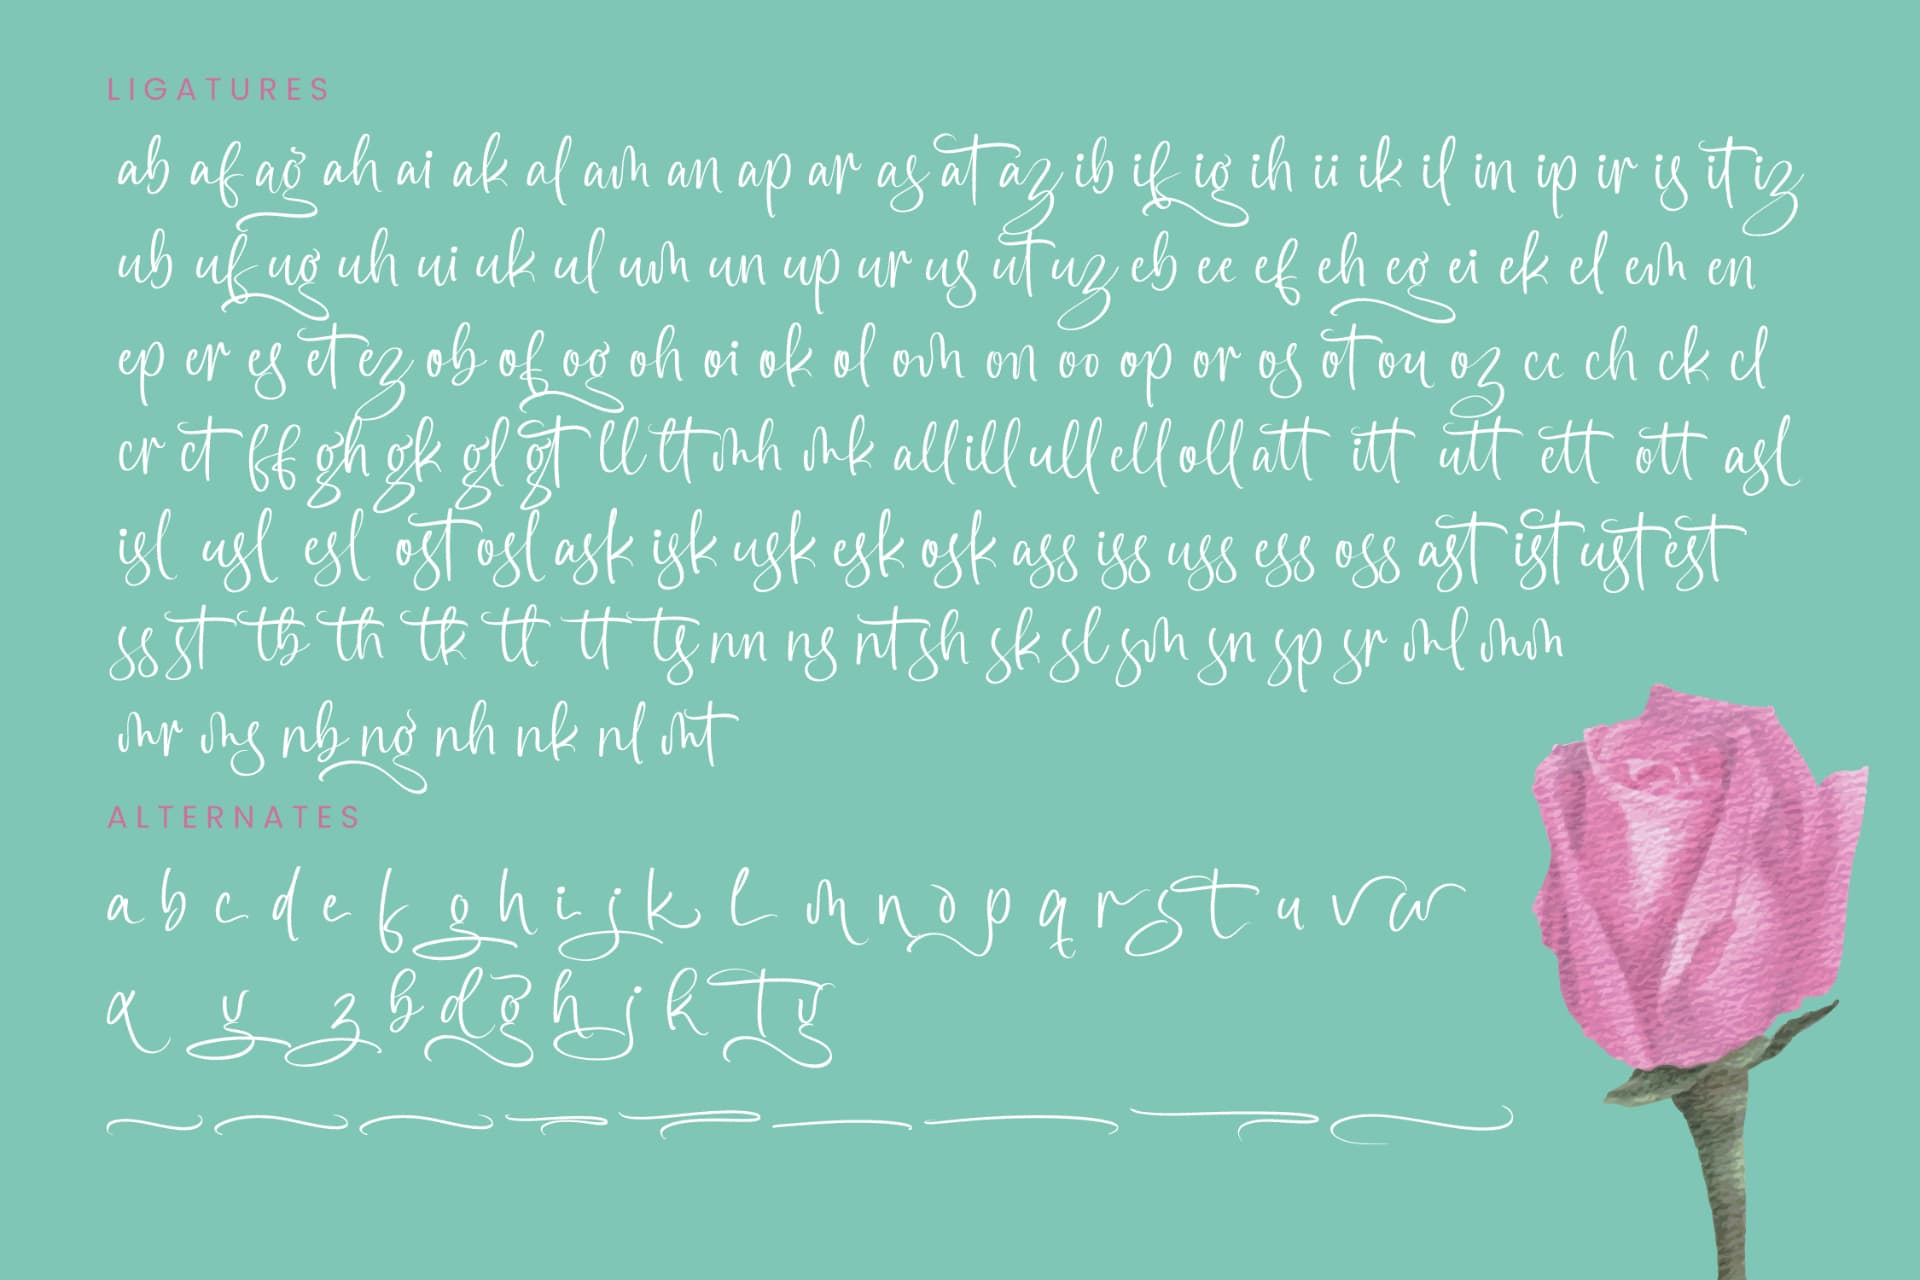 LIGATURES
ab af ag ah ai ak al am an ap ar as at az ib if ig ih ii ik il in ip ir is it iz
ub uf ug uh ui uk ul um un up ur us ut uz eb ee ef eh eg ei ek el em en
ep er es et ez ob of og oh oi ok ol om on oo op or os ot ou oz cc ch ck cl
cr ct ff gh gk gl gt ll lt mh mk all ill ull ell oll att itt utt ett ott asl
isl usl esl ost osl ask isk usk esk osk ass iss uss ess oss ast ist ust est
ss st tb th tk tl tt ts nn ns nt sh sk sl sm sn sp sr ml mm
mr ms nb ng nh nk nl mt
ALTERNATES
a b c d e f g h i j k l m n o p q r s t u v w
x y z b d g h j k t y